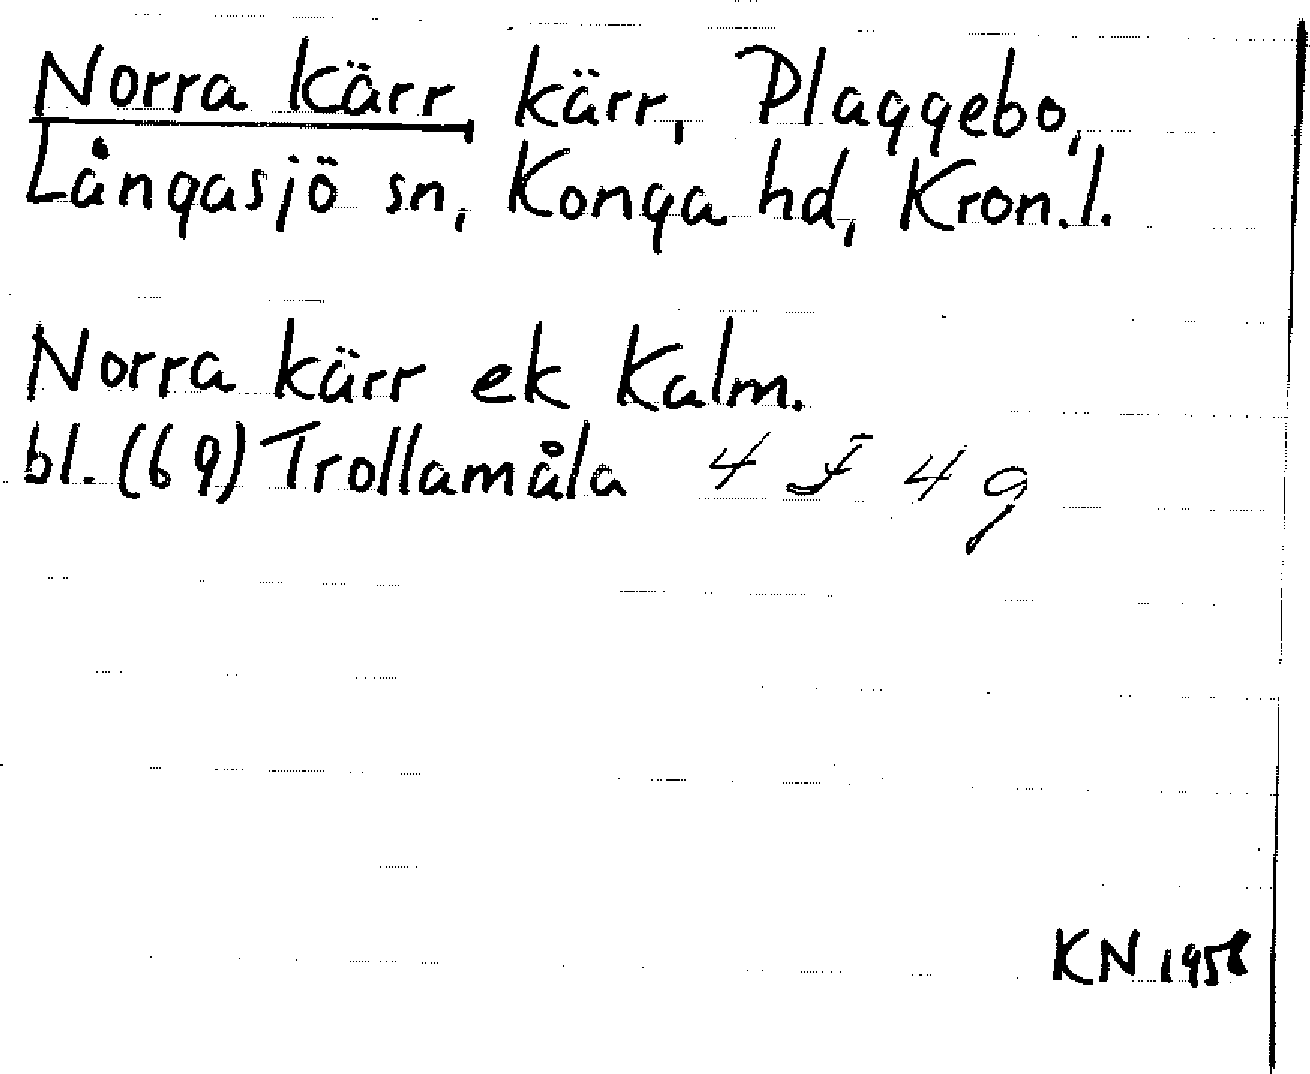 Norra Kärr, kärr, Plaggebo,
Långasjö sn, Konga hd, Kron.l.
Norra kärr ek Kalm.
bl. (69) Trollamåla 4 F 4 g
KN 1958